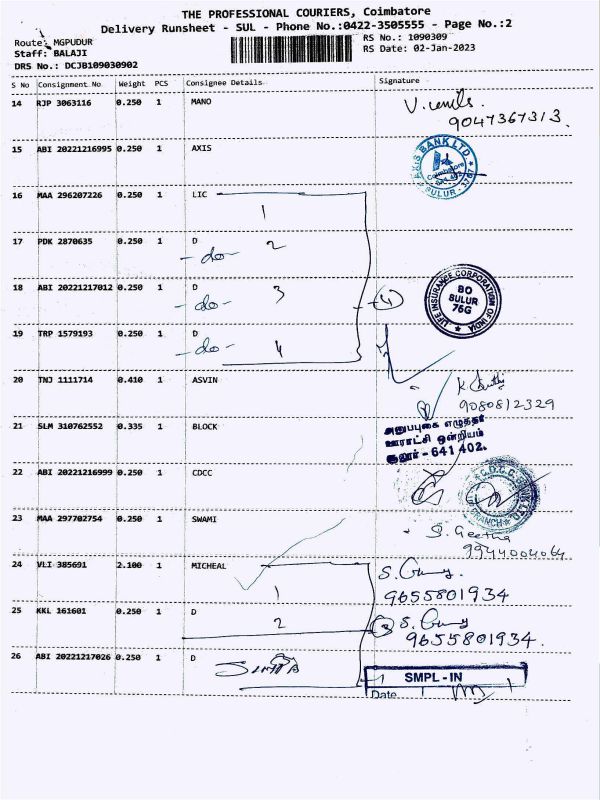 THE PROFESSIONAL COURIERS, Coimbatore
Delivery Runsheet - SUL - Phone No.:0422-3505555 - Page No.:2
Route: MGPUDUR
RS No.: 1090309
Staff: BALAJI
RS Date: 02-Jan-2023
DRS No.: DCJB109030902
S No Consignment No Weight PCS Consignee Details Signature
14 RJP 3063116 0.250 1 MANO
9047367313.
15 ABI 20221216995 0.250 1 AXIS
AXIS BANK LTD.
Coimbatore
SULUR - 3767
16 MAA 296207226 0.250 1 LIC
1
17 PDK 2870635 0.250 1 D
-do- 2
18 ABI 20221217012 0.250 1 D
-do- 3 4
LIFE INSURANCE CORPORATION OF INDIA
BO
SULUR
76G
19 TRP 1579193 0.250 1 D
-do- 4
20 TNJ 1111714 0.410 1 ASVIN
9080812329
21 SLM 310762552 0.335 1 BLOCK
அனுப்புகை எழுத்தர்
ஊராட்சி ஒன்றியம்
சூலூர் - 641 402.
22 ABI 20221216999 0.250 1 CDCC
C.D.C.C. BANK LTD
BRANCH
23 MAA 297702754 0.250 1 SWAMI
S. Geetha
9944004064
24 VLI 385691 2.100 1 MICHEAL
1
9655801934
25 KKL 161601 0.250 1 D
2 3
9655801934.
26 ABI 20221217026 0.250 1 D
SMPL - IN
Date